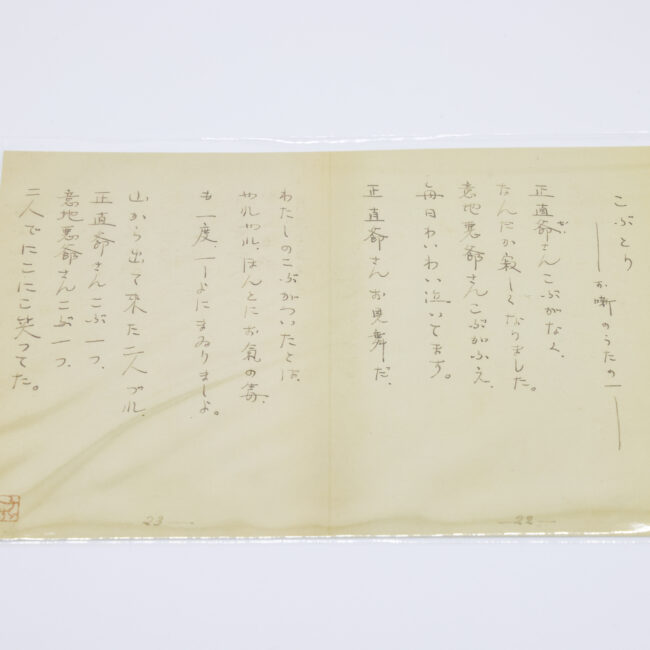 こぶとり
――お噺のうたの一――
正直爺さんこぶがなく、
なんだか寂しくなりました。
意地悪爺さんこぶがふえ、
毎日わいわい泣いてます。
正直爺さんお見舞だ、
わたしのこぶがついたとは、
ヤレヤレ、ほんとにお気の毒、
も一度、一しよにまゐりましよ。
山から出て来た二人づれ、
正直爺さんこぶ一つ、
意地悪爺さんこぶ一つ、
二人でにこにこ笑つてた。
22
23